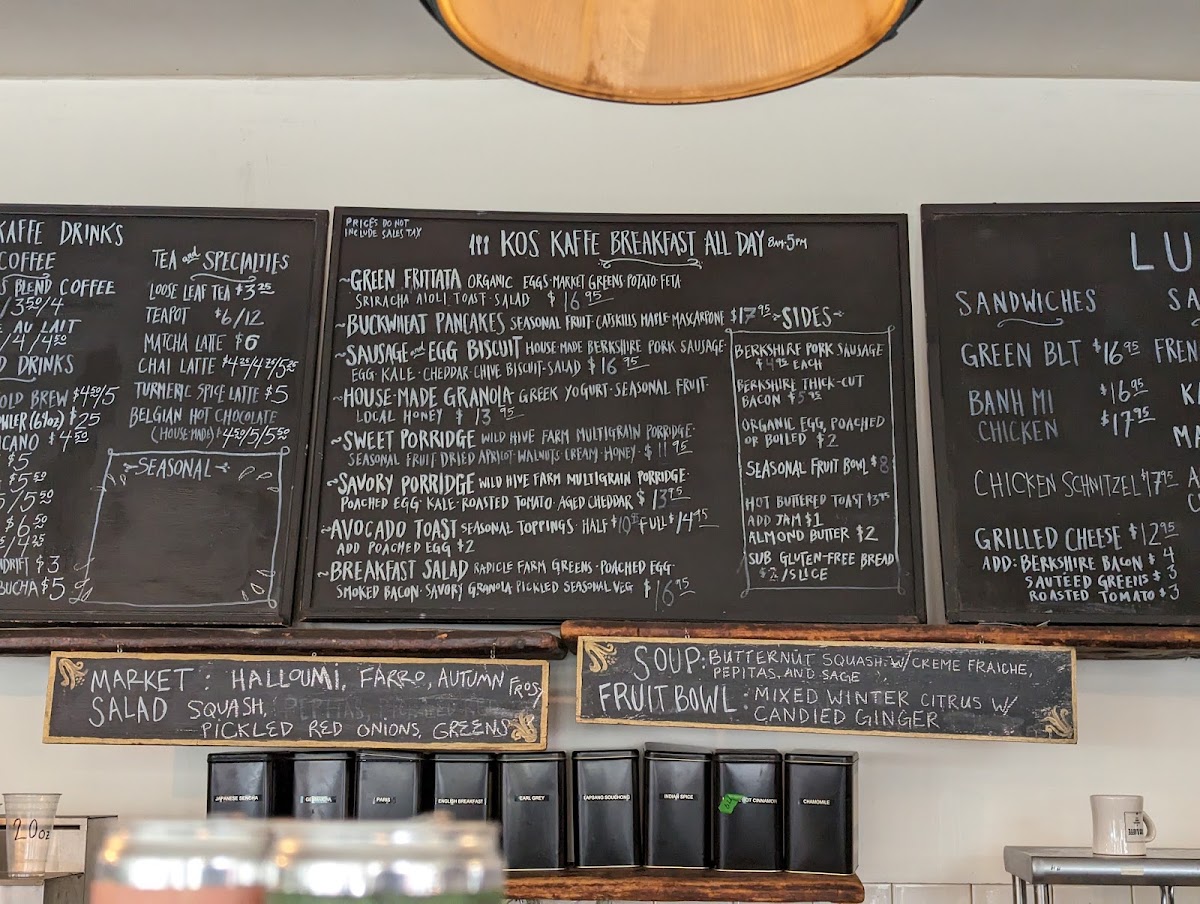 KAFFE DRINKS
COFFEE
BLEND COFFEE
/3⁵⁰/4
AU LAIT
/4/4⁵⁰
DRINKS
OLD BREW $4⁵⁰/5
(64oz) $25
ICANO $4⁵⁰
$5
$5⁵⁰
5/5⁵⁰
$6⁵⁰
/4²⁵
NDRIFT $3
BUCHA $5
TEA and SPECIALTIES
LOOSE LEAF TEA $3²⁵
TEAPOT $6/12
MATCHA LATTE $6
CHAI LATTE $4²⁵/4⁷⁵/5²⁵
TURMERIC SPICE LATTE $5
BELGIAN HOT CHOCOLATE
(HOUSE MADE) $4⁵⁰/5/5⁵⁰
SEASONAL
PRICES DO NOT
INCLUDE SALES TAX
KOS KAFFE BREAKFAST ALL DAY 8AM-5PM
~GREEN FRITTATA ORGANIC EGGS·MARKET GREENS·POTATO·FETA
SRIRACHA AIOLI·TOAST·SALAD $16⁹⁵
~BUCKWHEAT PANCAKES SEASONAL FRUIT·CATSKILLS MAPLE·MASCARPONE $17⁹⁵
~SAUSAGE and EGG BISCUIT HOUSE MADE BERKSHIRE PORK SAUSAGE·
EGG·KALE·CHEDDAR·CHIVE BISCUIT·SALAD $16⁹⁵
~HOUSE-MADE GRANOLA·GREEK YOGURT·SEASONAL FRUIT·
LOCAL HONEY $13⁹⁵
~SWEET PORRIDGE WILD HIVE FARM MULTIGRAIN PORRIDGE·
SEASONAL FRUIT DRIED APRICOT·WALNUTS·CREAM·HONEY·$11⁹⁵
~SAVORY PORRIDGE WILD HIVE FARM MULTIGRAIN PORRIDGE·
POACHED EGG·KALE·ROASTED TOMATO·AGED CHEDDAR $13⁷⁵
~AVOCADO TOAST SEASONAL TOPPINGS·HALF $10 FULL $14⁹⁵
ADD POACHED EGG $2
~BREAKFAST SALAD RADICLE FARM GREENS·POACHED EGG·
SMOKED BACON·SAVORY GRANOLA·PICKLED SEASONAL VEG $16⁹⁵
SIDES
BERKSHIRE PORK SAUSAGE
EACH
BERKSHIRE THICK-CUT
BACON $5⁹⁵
ORGANIC EGG, POACHED
OR BOILED $2
SEASONAL FRUIT BOWL $8
HOT BUTTERED TOAST $3⁷⁵
ADD JAM $1
ALMOND BUTTER $2
SUB GLUTEN-FREE BREAD
$2/SLICE
LU
SANDWICHES
GREEN BLT $16⁹⁵
BANH MI $16⁹⁵
CHICKEN $17⁹⁵
CHICKEN SCHNITZEL $17⁹⁵
GRILLED CHEESE $12⁹⁵
ADD: BERKSHIRE BACON $4
SAUTEED GREENS $3
ROASTED TOMATO $3
SA
FREN
K
MA
MARKET : HALLOUMI, FARRO, AUTUMN FROST
SALAD SQUASH,
PICKLED RED ONIONS, GREENS
SOUP: BUTTERNUT SQUASH W/ CREME FRAICHE,
PEPITAS, AND SAGE
FRUIT BOWL : MIXED WINTER CITRUS W/
CANDIED GINGER
JAPANESE SENCHA
GENMAICHA
PARIS
ENGLISH BREAKFAST
EARL GREY
LAPSANG SOUCHONG
INDIAN SPICE
HOT CINNAMON
CHAMOMILE
20 oz